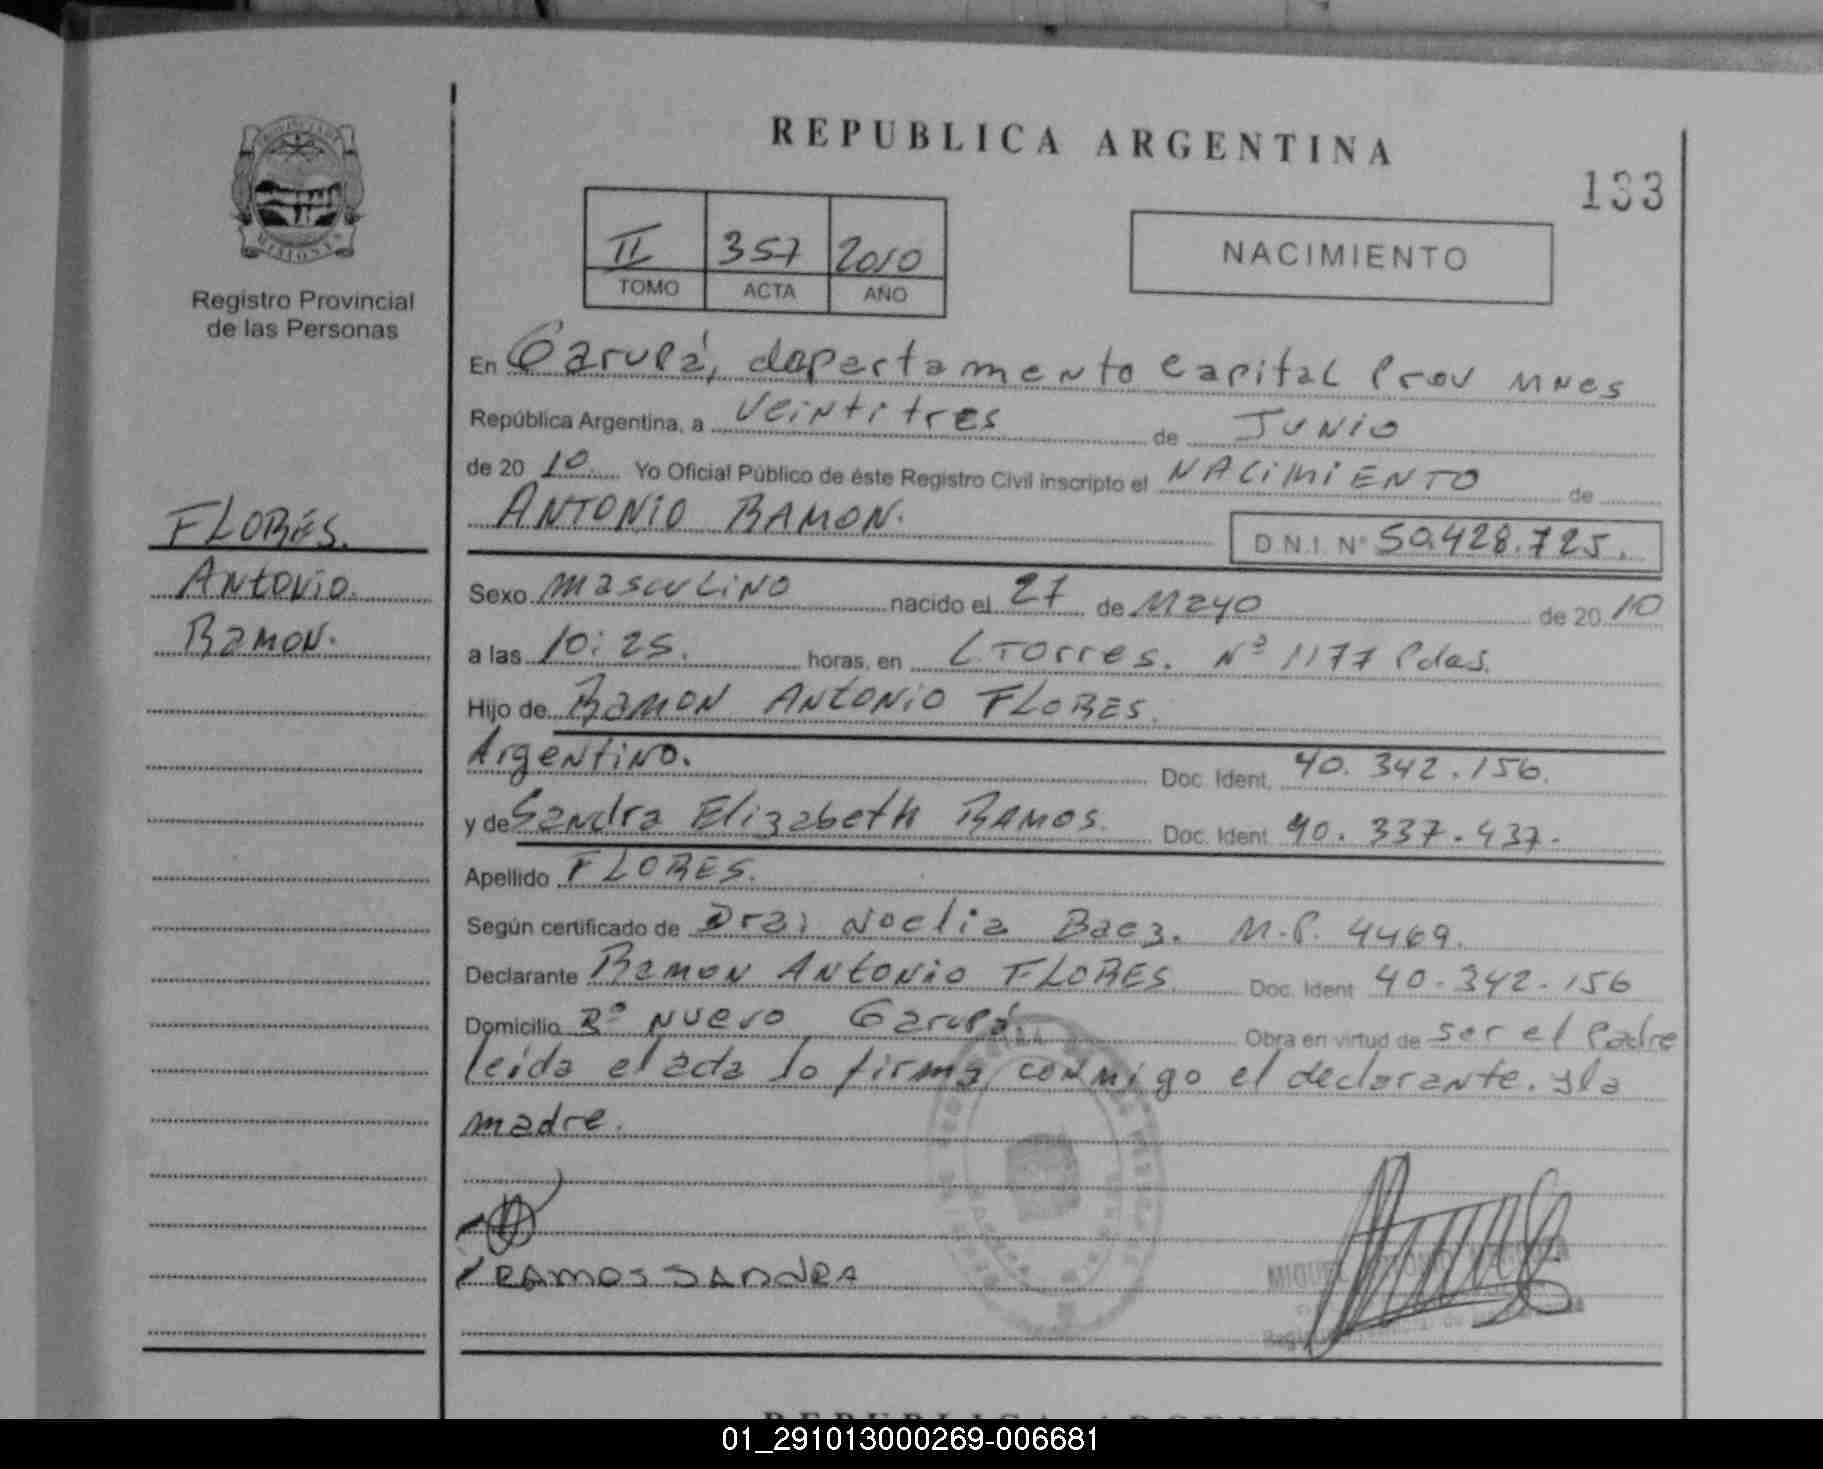 REPUBLICA ARGENTINA
133
II 357 2010
TOMO ACTA AÑO
NACIMIENTO
Registro Provincial
de las Personas
FLORES.
Antonio.
Ramon.
En Garupá, departamento Capital Prov Mnes
República Argentina, a veintitres de Junio
de 20 10 Yo Oficial Público de éste Registro Civil inscripto el NACIMIENTO de
ANTONIO RAMON.
D.N.I. Nº 50.428.725.
Sexo masculino nacido el 27 de Mayo de 20 10
a las 10:25. horas, en L. Torres. Nº 1177 Pdas.
Hijo de Ramon Antonio FLORES.
Argentino. Doc. Ident. 40.342.156.
y de Sandra Elizabeth RAMOS. Doc. Ident. 40.337.437.
Apellido FLORES.
Según certificado de Dra: Noelia Baez. M.P. 4469.
Declarante Ramon Antonio FLORES Doc. Ident. 40.342.156
Domicilio Bº Nuevo Garupá Obra en virtud de ser el Padre
leída el acta lo firma conmigo el declarante. y la
madre.
RAMOS SANDRA
MIGUEL
REPUBLICA ARGENTINA
01_291013000269-006681